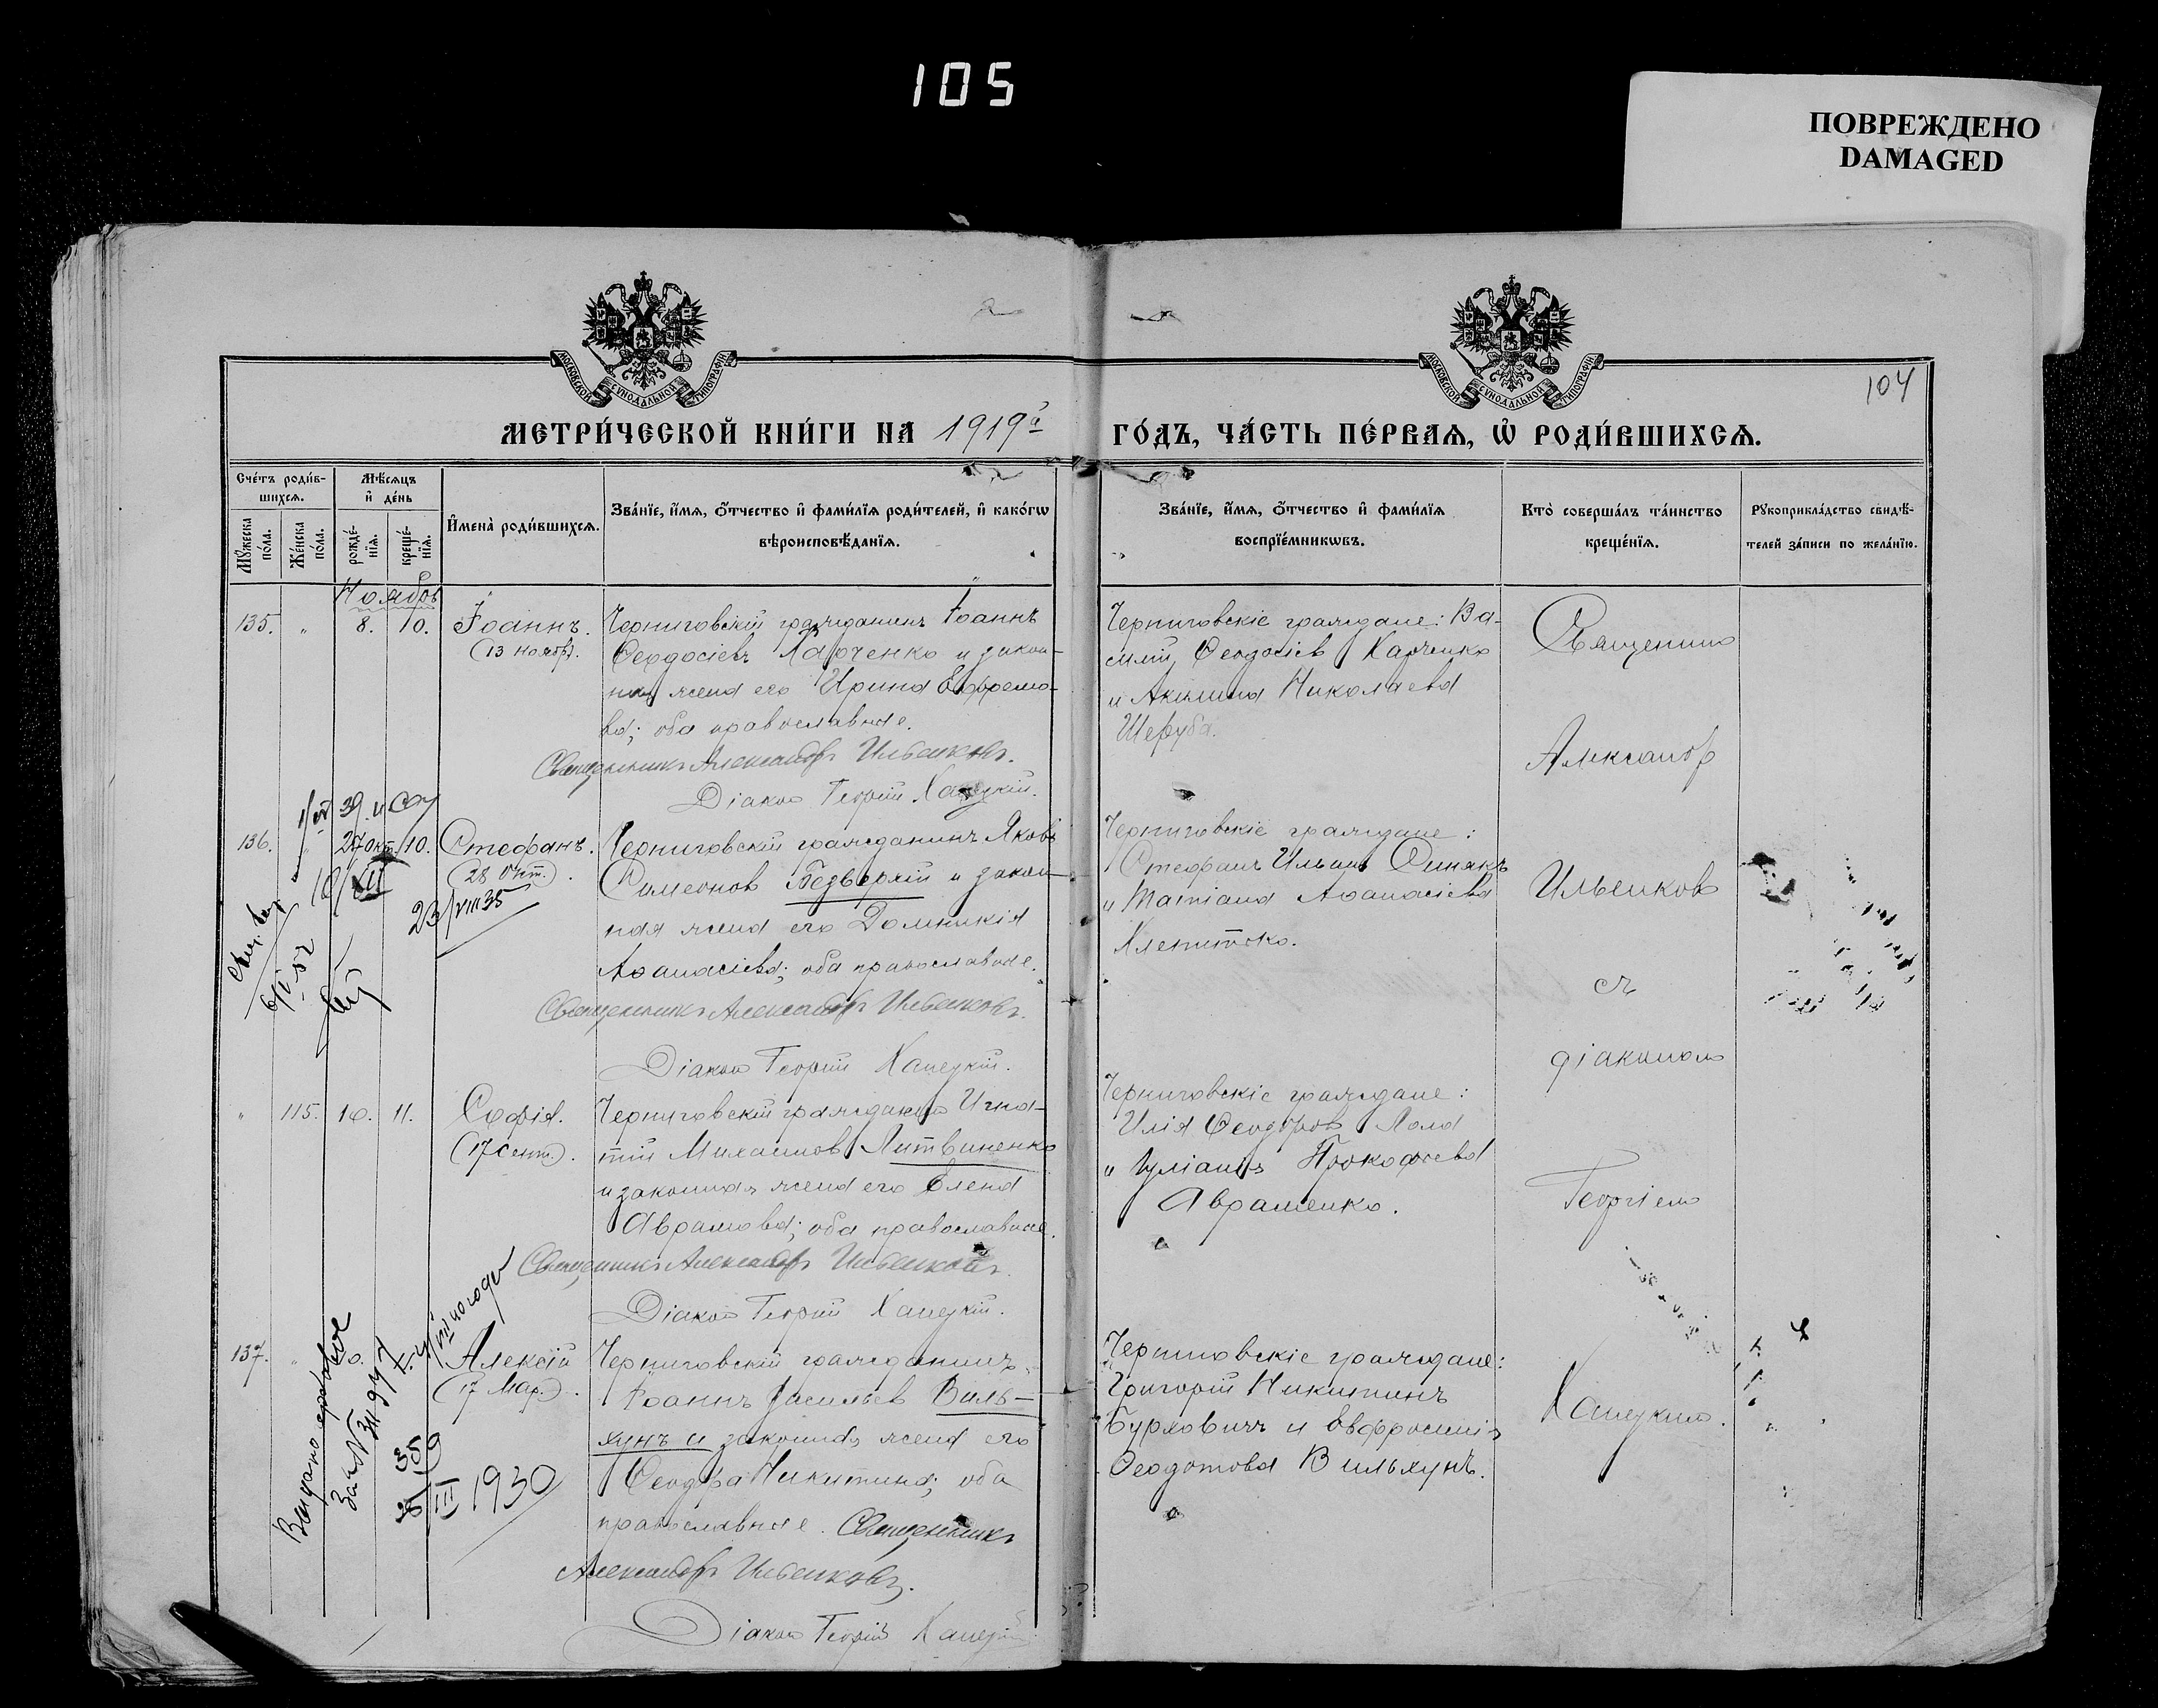 105
ПОВРЕЖДЕНО
DAMAGED
МОСКОВСКОЙ СУНОДАЛЬНОЙ ТИПОГРАФІИ
МОСКОВСКОЙ СУНОДАЛЬНОЙ ТИПОГРАФІИ
104
МЕТРИ́ЧЕСКОЙ КНИ́ГИ НА 1919й
ГО́ДЪ, ЧА́СТЬ ПЕ́РВАѦ, Ѡ҆ РОДИ́ВШИХСѦ.
Сче́тъ роди́в-
шихсѧ.
Мꙋ́жеска по́ла.
Же́нска по́ла.
Мѣ́сѧцъ
и҆ де́нь
рожде́-
нїѧ.
креще́-
нїѧ.
И҆мена̀ роди́вшихсѧ.
Зва́нїе, и҆́мѧ, ѻ҆́тчество и҆ фами́лїѧ роди́телей, и҆ како́гѡ
вѣроисповѣ́данїѧ.
Зва́нїе, и҆́мѧ, ѻ҆́тчество и҆ фами́лїѧ
воспрїе́мникѡвъ.
Кто̀ соверша́лъ та́инство
креще́нїѧ.
Рꙋкоприкла́дство свидѣ́-
телей за́писи по жела́нїю.
Ноябрь
135. " 8. 10. Іоаннъ.
(13 Ноябр.)
Черниговскій гражданинъ Іоаннъ
Ѳеодосіевъ Харченко и закон-
ная жена его Ирина Евфремо-
ва; оба православные.
Священникъ Александръ Ильенковъ.
Діаконъ Георгій Ханецкій.
Черниговскіе граждане: Ва-
силій Ѳеодосіевъ Харченко
и Акилина Николаева
Шеруба.
Священникъ
Александръ
Ильенковъ
съ
діакономъ
Георгіемъ
Ханецкимъ.
136. " 27 окт. 10. Стефанъ.
(28 Окт.)
23/VIII 35
Черниговскій гражданинъ Яковъ
Симеоновъ Безверхій и закон-
ная жена его Домникія
Аѳанасіева; оба православные.
Священникъ Александръ Ильенковъ.
Діаконъ Георгій Ханецкій.
Черниговскіе граждане:
Стефанъ Ильинъ
и Татіана Аѳанасіева
" 115. 10. 11. Софія.
(17 Сент.)
Черниговскій гражданинъ Игна-
тій Михаиловъ Литвиненко
и законная жена его Елена
Аврамова; оба православные.
Священникъ Александръ Ильенковъ.
Діаконъ Георгій Ханецкій.
Черниговскіе граждане:
Илія Ѳеодоровъ
и Іуліанія Прокофіева
Авраменко.
137. " Алексій
(17 Мар.)
Черниговскій гражданинъ
Іоаннъ Васильевъ Виль-
хунъ и законная жена его
Ѳеодора Никитина; оба
православные. Священникъ
Александръ Ильенковъ.
Діаконъ Георгій Ханецкій.
III 1930
Черниговскіе граждане:
Григорій Никитинъ
Бурховичъ и Евфросинія
Ѳеодотова Вильхунъ.